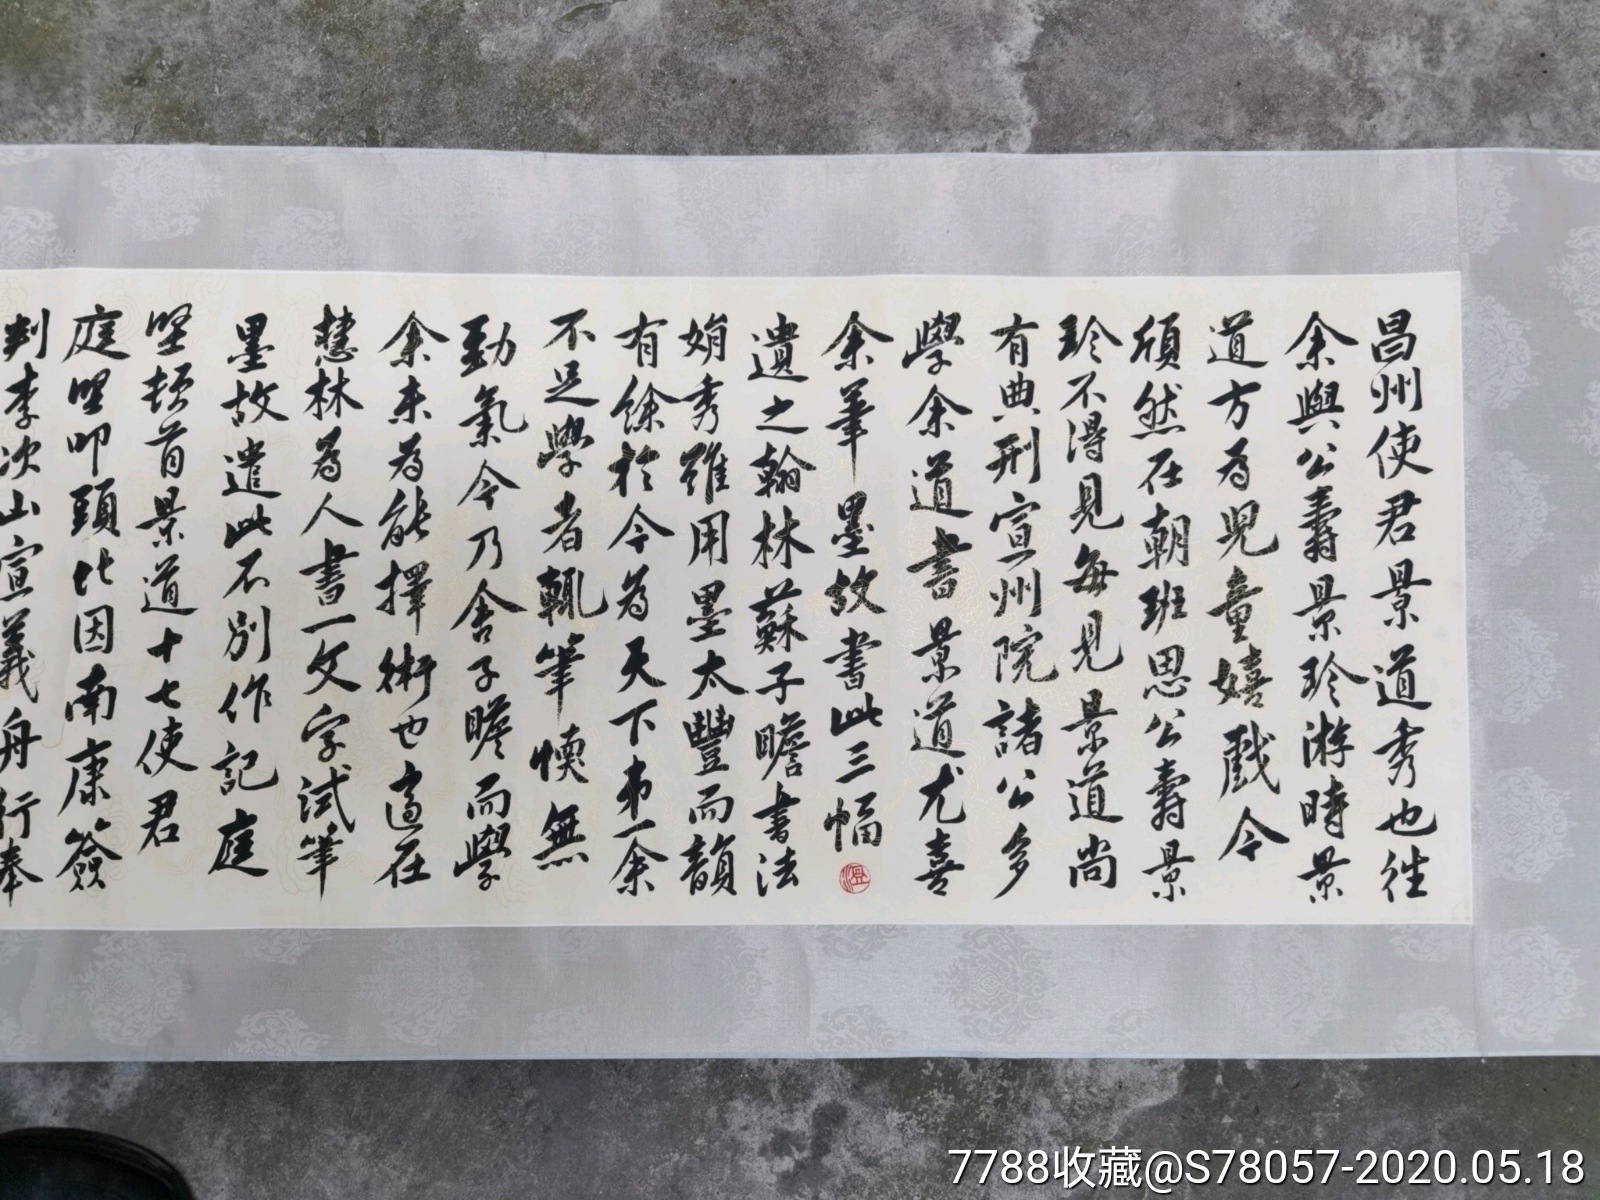 昌州使君景道秀也往
余與公壽景珍游時景
道方為兒童嬉戲今
頎然在朝班思公壽景
珍不得見每見景道尚
有典刑宣州院諸公多
學余道書景道尤喜
余筆墨故書此三幅
遺之翰林蘇子瞻書法
娟秀雖用墨太豐而韻
有餘於今為天下第一余
不足學者輒筆愞無
勁氣今乃舍子瞻而學
余未為能擇術也適在
慧林為人書一文字試筆
墨故遣此不別作記庭
堅頓首景道十七使君
庭堅叩頭比因南康簽
判李次山宣義舟行奉
7788收藏@S78057-2020.05.18